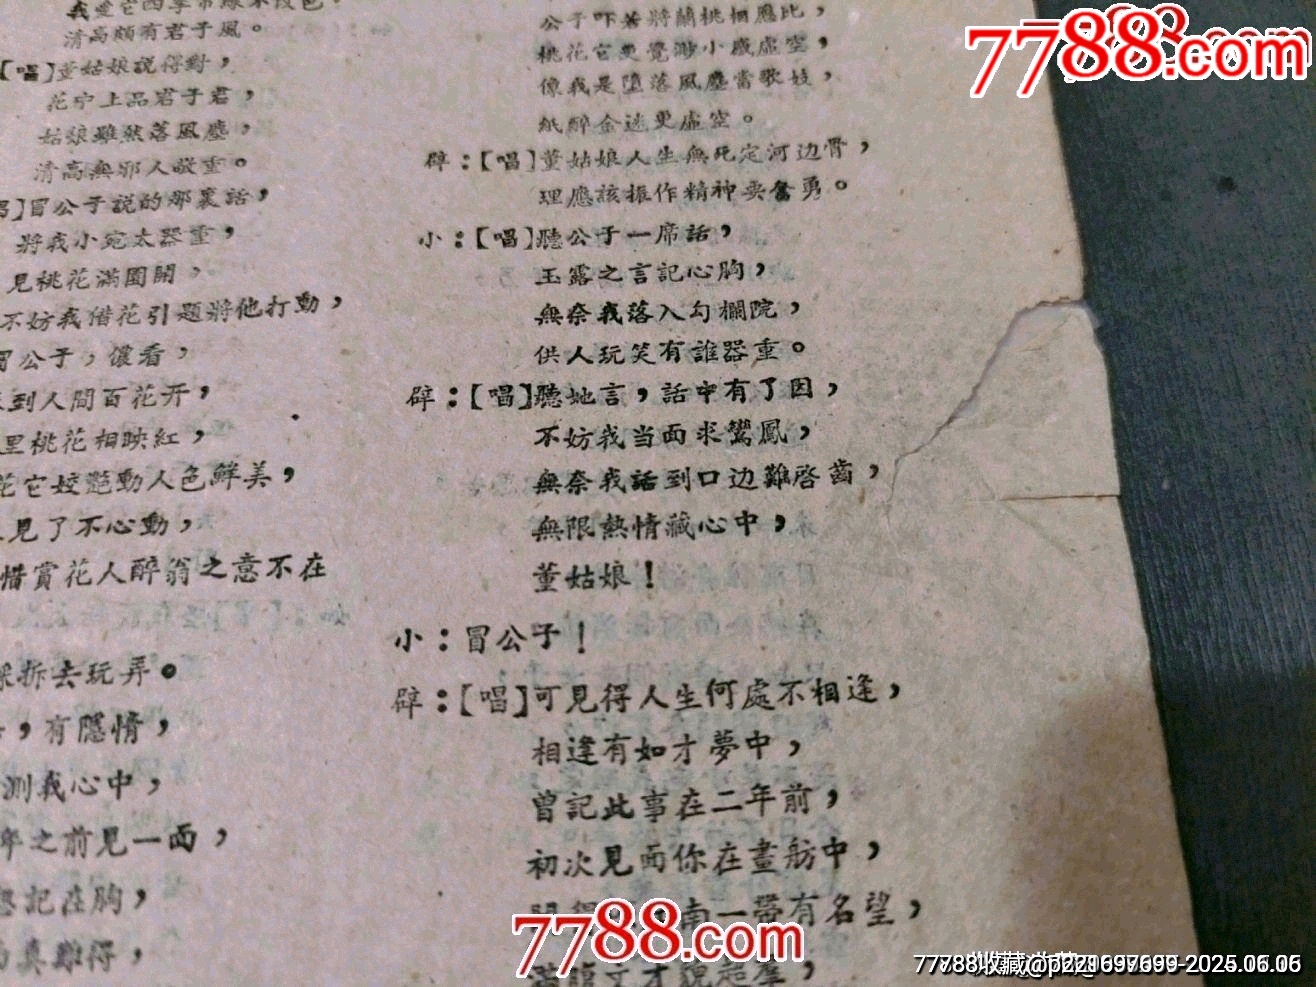 我愛它四季常綠不改色。
清高頗有君子風。
【唱】董姑娘說得對，
花中上品君子君，
姑娘雖然落風塵，
清高無邪人敬重。
唱】冒公子說的那裏話，
將我小宛太器重，
見桃花滿園開，
不妨我借花引題將他打動，
冒公子，儂看，
到人間百花开，
里桃花相映紅，
花它姣艷動人色鮮美，
見了不心動，
惜賞花人醉翁之意不在
採折去玩弄。
，有隱情，
測我心中，
年之前見一面，
記在胸，
真難得，
公子吓若將蘭桃相應比，
桃花它更覺渺小感虛空，
像我是墮落風塵當歌妓，
紙醉金迷更虛空。
辟：【唱】董姑娘人生無死定河边骨，
理應該振作精神要奮勇。
小：【唱】聽公子一席話，
玉露之言記心胸，
無奈我落入勾欄院，
供人玩笑有誰器重。
辟：【唱】聽她言，話中有了因，
不妨我当面求鸞鳳，
無奈我話到口边難啓齒，
無限熱情藏心中，
董姑娘！
小：冒公子！
辟：【唱】可見得人生何處不相逢，
相逢有如才夢中，
曾記此事在二年前，
初次見面你在畫舫中，
南一帶有名望，
文才貌超羣，
7788.com
7788.com
7788收藏
2025.06.06